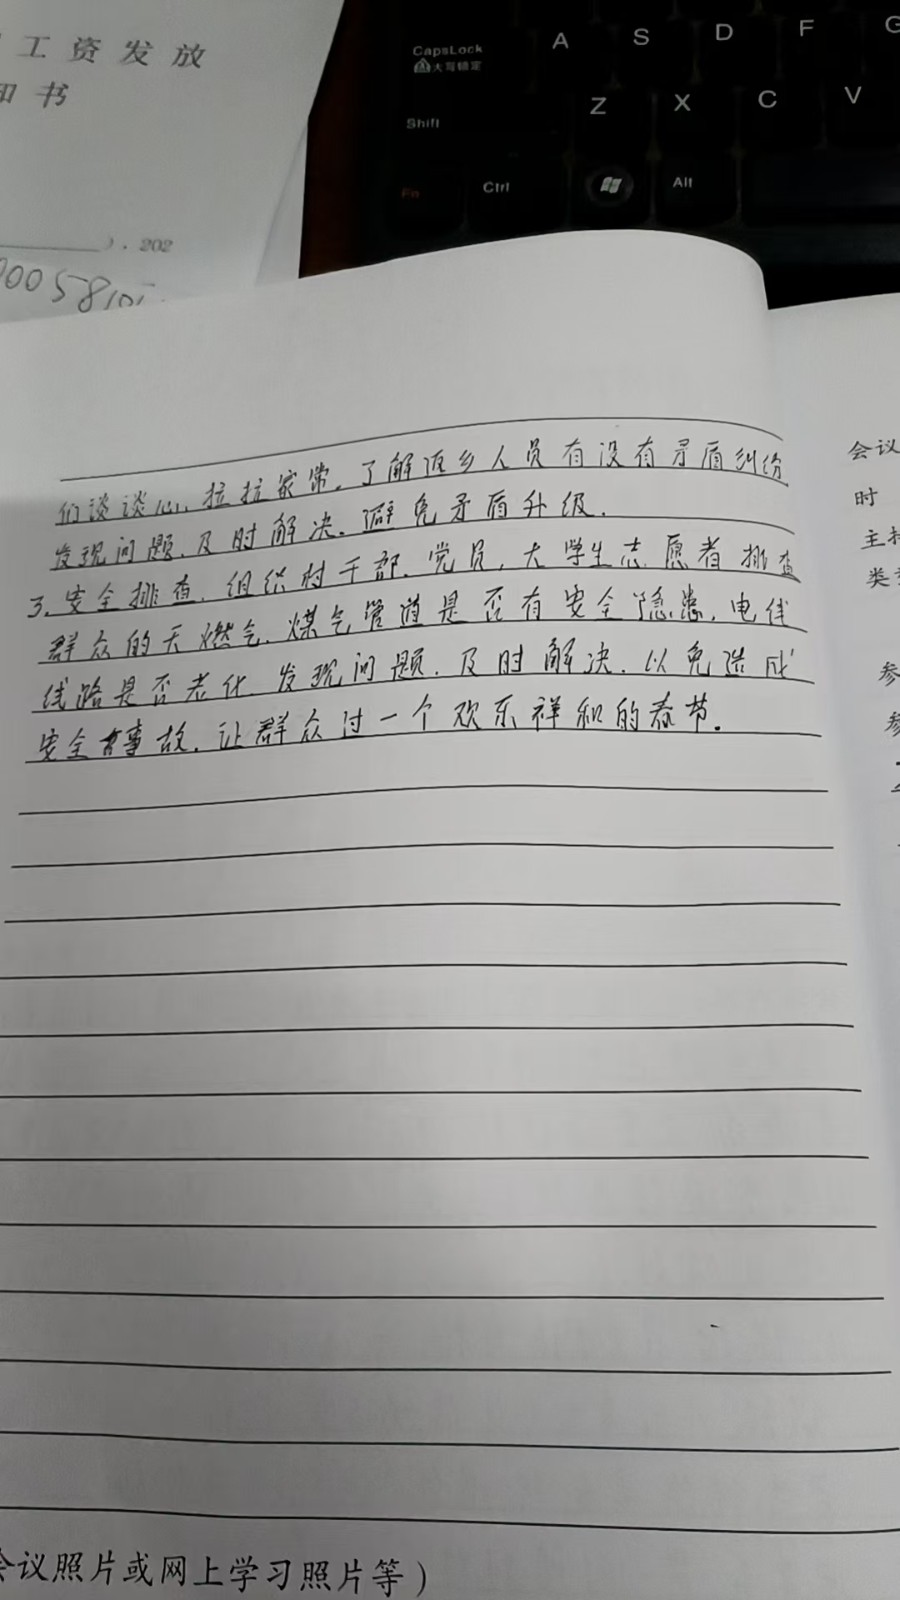 工资发放
书
CapsLock
大写锁定
A S D F G
Shift
Z X C V
Fn Ctrl Alt
),202
们谈谈心,拉拉家常,了解返乡人员有没有矛盾纠纷
发现问题,及时解决,避免矛盾升级.
3.安全排查.组织村干部、党员,大学生志愿者排查
群众的天燃气、煤气管道是否有安全隐患,电线
线路是否老化,发现问题,及时解决,以免造成
安全事故,让群众过一个欢乐祥和的春节.
会议
时
主持
类
参
参
会议照片或网上学习照片等)